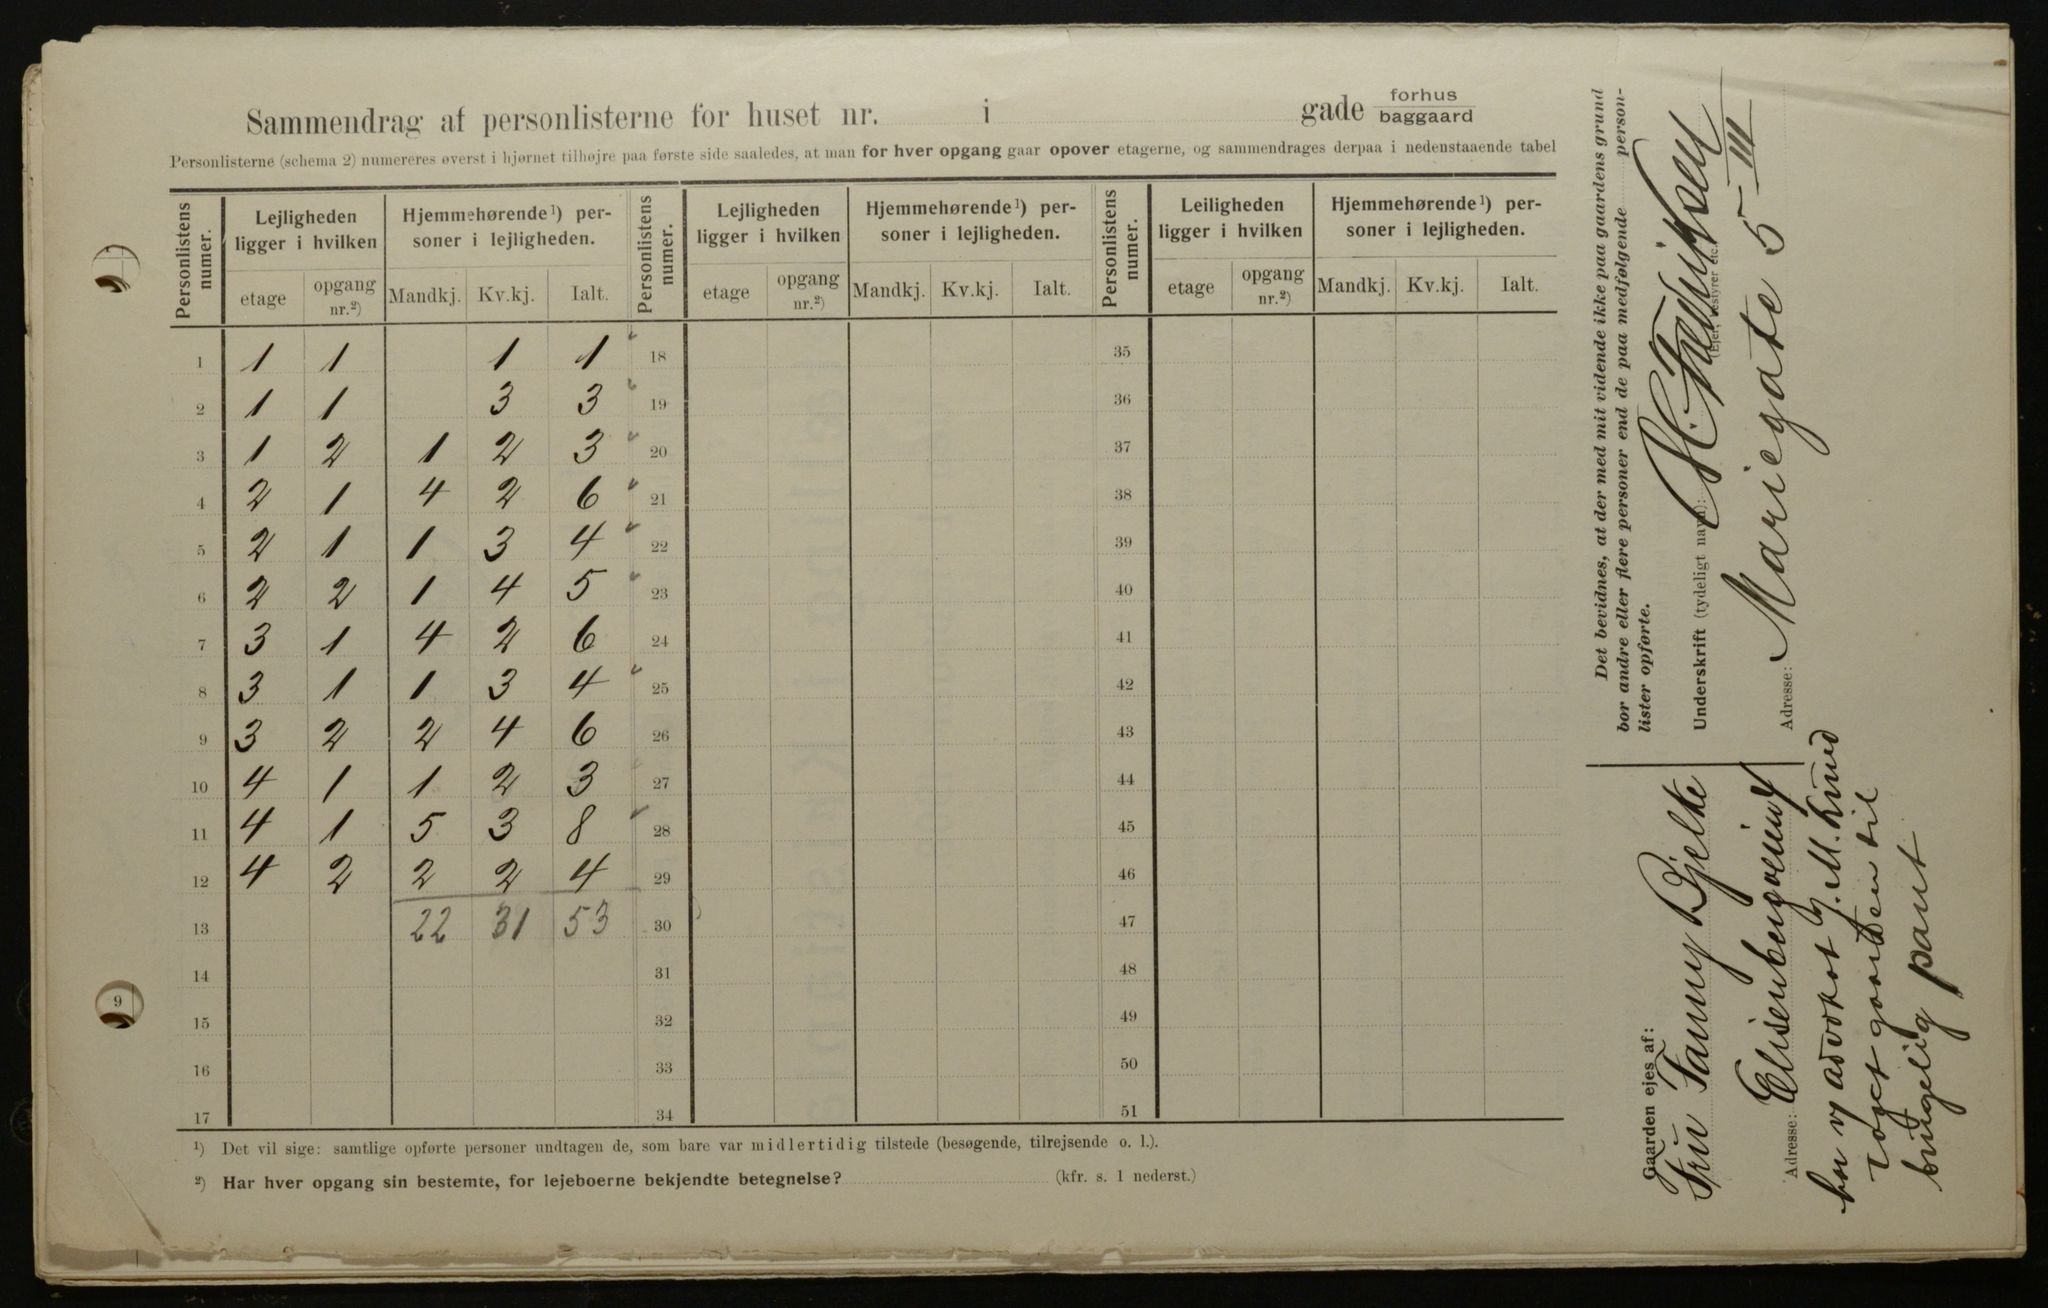 Sammendrag af personlisterne for huset nr. i gade forhus baggaard
Personlisterne (schema 2) numereres øverst i hjørnet tilhøjre paa første side saaledes, at man for hver opgang gaar opover etagerne, og sammendrages derpaa i nedenstaaende tabel
Personlistens numer. Lejligheden ligger i hvilken Hjemmehørende¹) personer i lejligheden. Personlistens numer. Lejligheden ligger i hvilken Hjemmehørende¹) personer i lejligheden. Personlistens numer. Leiligheden ligger i hvilken Hjemmehørende¹) personer i lejligheden.
etage opgang nr.²) Mandkj. Kv.kj. Ialt. etage opgang nr.²) Mandkj. Kv.kj. Ialt. etage opgang nr.²) Mandkj. Kv.kj. Ialt.
1 1 1 1 1 18 35
2 1 1 3 3 19 36
3 1 2 1 2 3 20 37
4 2 1 4 2 6 21 38
5 2 1 1 3 4 22 39
6 2 2 1 4 5 23 40
7 3 1 4 2 6 24 41
8 3 1 1 3 4 25 42
9 3 2 2 4 6 26 43
10 4 1 1 2 3 27 44
11 4 1 5 3 8 28 45
12 4 2 2 2 4 29 46
13 22 31 53 30 47
14 31 48
15 32 49
16 33 50
17 34 51
¹) Det vil sige: samtlige opførte personer undtagen de, som bare var midlertidig tilstede (besøgende, tilrejsende o. l.).
²) Har hver opgang sin bestemte, for lejeboerne bekjendte betegnelse? (kfr. s. 1 nederst.)
9
Det bevidnes, at der med mit vidende ikke paa gaardens grund
bor andre eller flere personer end de paa medfølgende personlister opførte.
Underskrift (tydeligt navn): H. Fredriksen
(Ejer, bestyrer etc.)
Adresse: Mariegate 5 III
Gaarden ejes af:
Fru Fanny Bjelke
Adresse: Elisenbergveien 4
har vj advokat J. M. Lund
gaarden til
brugelig pant